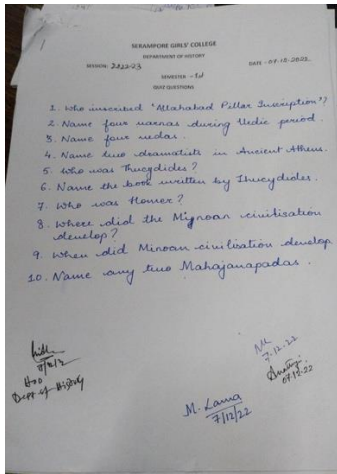 SERAMPORE GIRLS' COLLEGE
DEPARTMENT OF HISTORY
SESSION: 2022-23 DATE - 07.12.2022
SEMESTER - 1st
QUIZ QUESTIONS
1. Who inscribed 'Allahabad Pillar Inscription'?
2 Name four varnas during Vedic period.
3. Name four vedas.
4. Name two dramatists in Ancient Athens.
5. Who was Thucydides?
6. Name the book written by Thucydides.
7. Who was Homer?
8. Where did the Mynoan civilisation
develop?
9. When did Minoan civilisation develop
10. Name any two Mahajanapadas.
HOD
Dept. of History
7.12.22
07.12.22
M. Lama
7/12/22